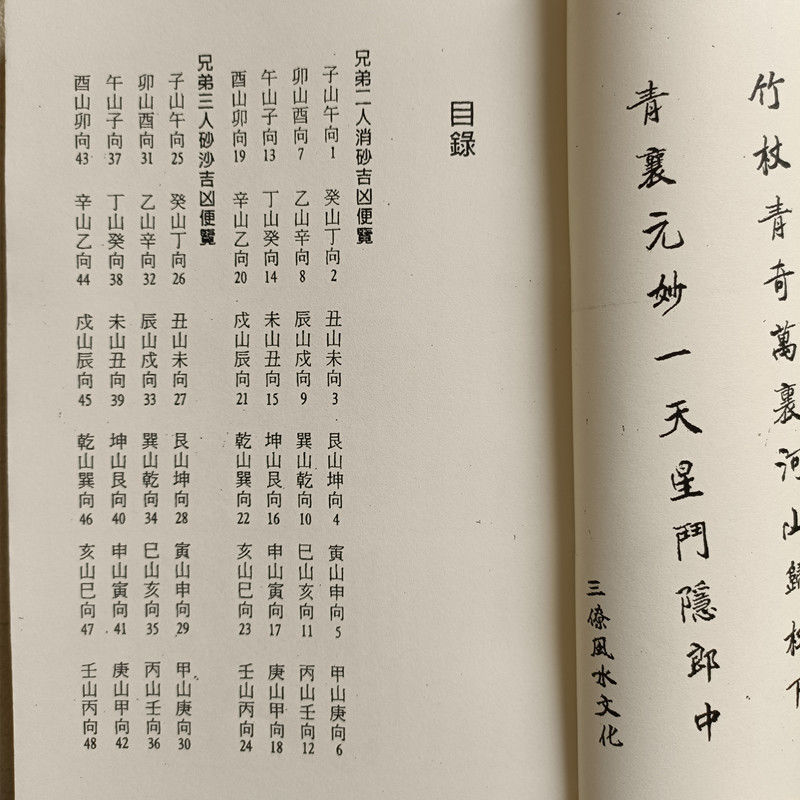 竹杖青奇萬裏河山歸杖下
青襄元妙一天星鬥隱郎中
三僚風水文化
目錄
兄弟二人消砂吉凶便覽
子山午向1 癸山丁向2 丑山未向3 艮山坤向4 寅山申向5 甲山庚向6
卯山酉向7 乙山辛向8 辰山戍向9 巽山乾向10 巳山亥向11 丙山壬向12
午山子向13 丁山癸向14 未山丑向15 坤山艮向16 申山寅向17 庚山甲向18
酉山卯向19 辛山乙向20 戍山辰向21 乾山巽向22 亥山巳向23 壬山丙向24
兄弟三人砂沙吉凶便覽
子山午向25 癸山丁向26 丑山未向27 艮山坤向28 寅山申向29 甲山庚向30
卯山酉向31 乙山辛向32 辰山戍向33 巽山乾向34 巳山亥向35 丙山壬向36
午山子向37 丁山癸向38 未山丑向39 坤山艮向40 申山寅向41 庚山甲向42
酉山卯向43 辛山乙向44 戍山辰向45 乾山巽向46 亥山巳向47 壬山丙向48